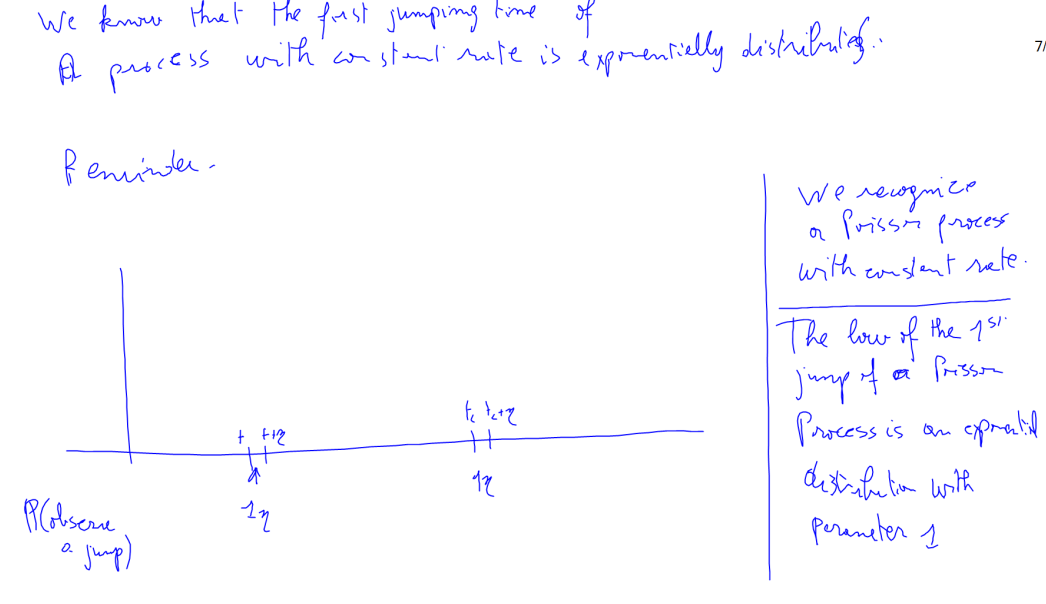 We know that the first jumping time of
a process with constant rate is exponentially distributed.
7/
Reminder.
We recognize
a Poisson process
with constant rate.
The law of the 1st
jump of a Poisson
Process is an exponential
distribution with
parameter 1
t t+η
t₂ t₂+η
1η
1η
P(observe
a jump)